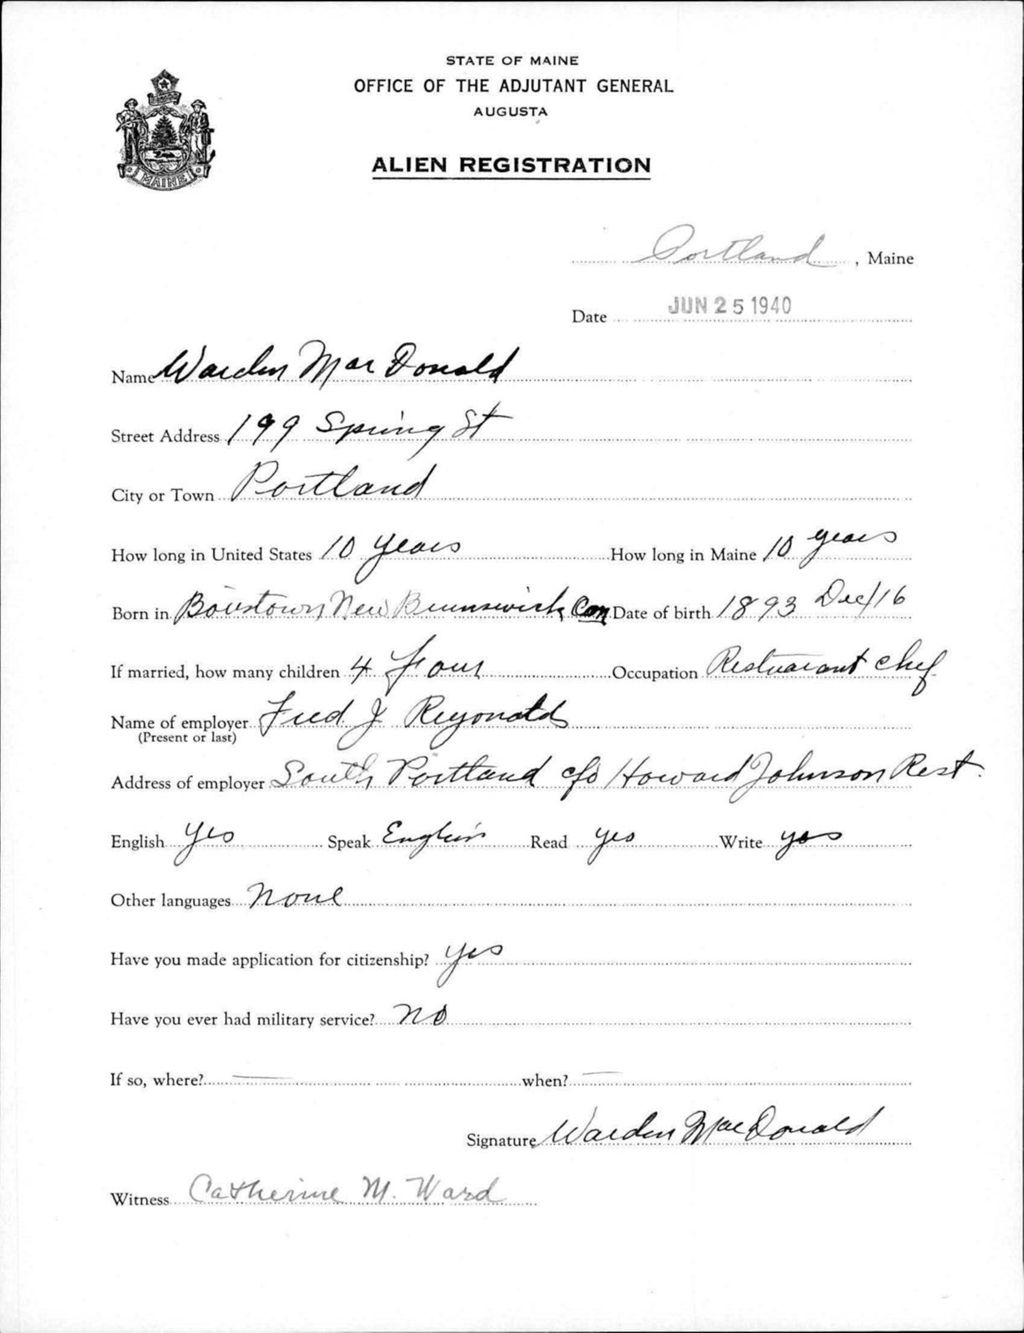 STATE OF MAINE
OFFICE OF THE ADJUTANT GENERAL
AUGUSTA
ALIEN REGISTRATION
MAINE
Portland, Maine
Date JUN 25 1940
Name Warden MacDonald
Street Address 199 Spring St
City or Town Portland
How long in United States 10 years How long in Maine 10 years
Born in Boiestown New Brunswick Can Date of birth 1893 Dec/16
If married, how many children 4 four Occupation Restuarant chef
Name of employer Fred J Reynolds
(Present or last)
Address of employer South Portland c/o Howard Johnson Rest.
English Yes Speak English Read yes Write yes
Other languages None
Have you made application for citizenship? yes
Have you ever had military service? no
If so, where? — when? —
Signature Warden MacDonald
Witness Catherine M. Ward